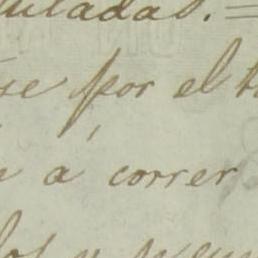 uladas. =
se por el t
á correr
los y